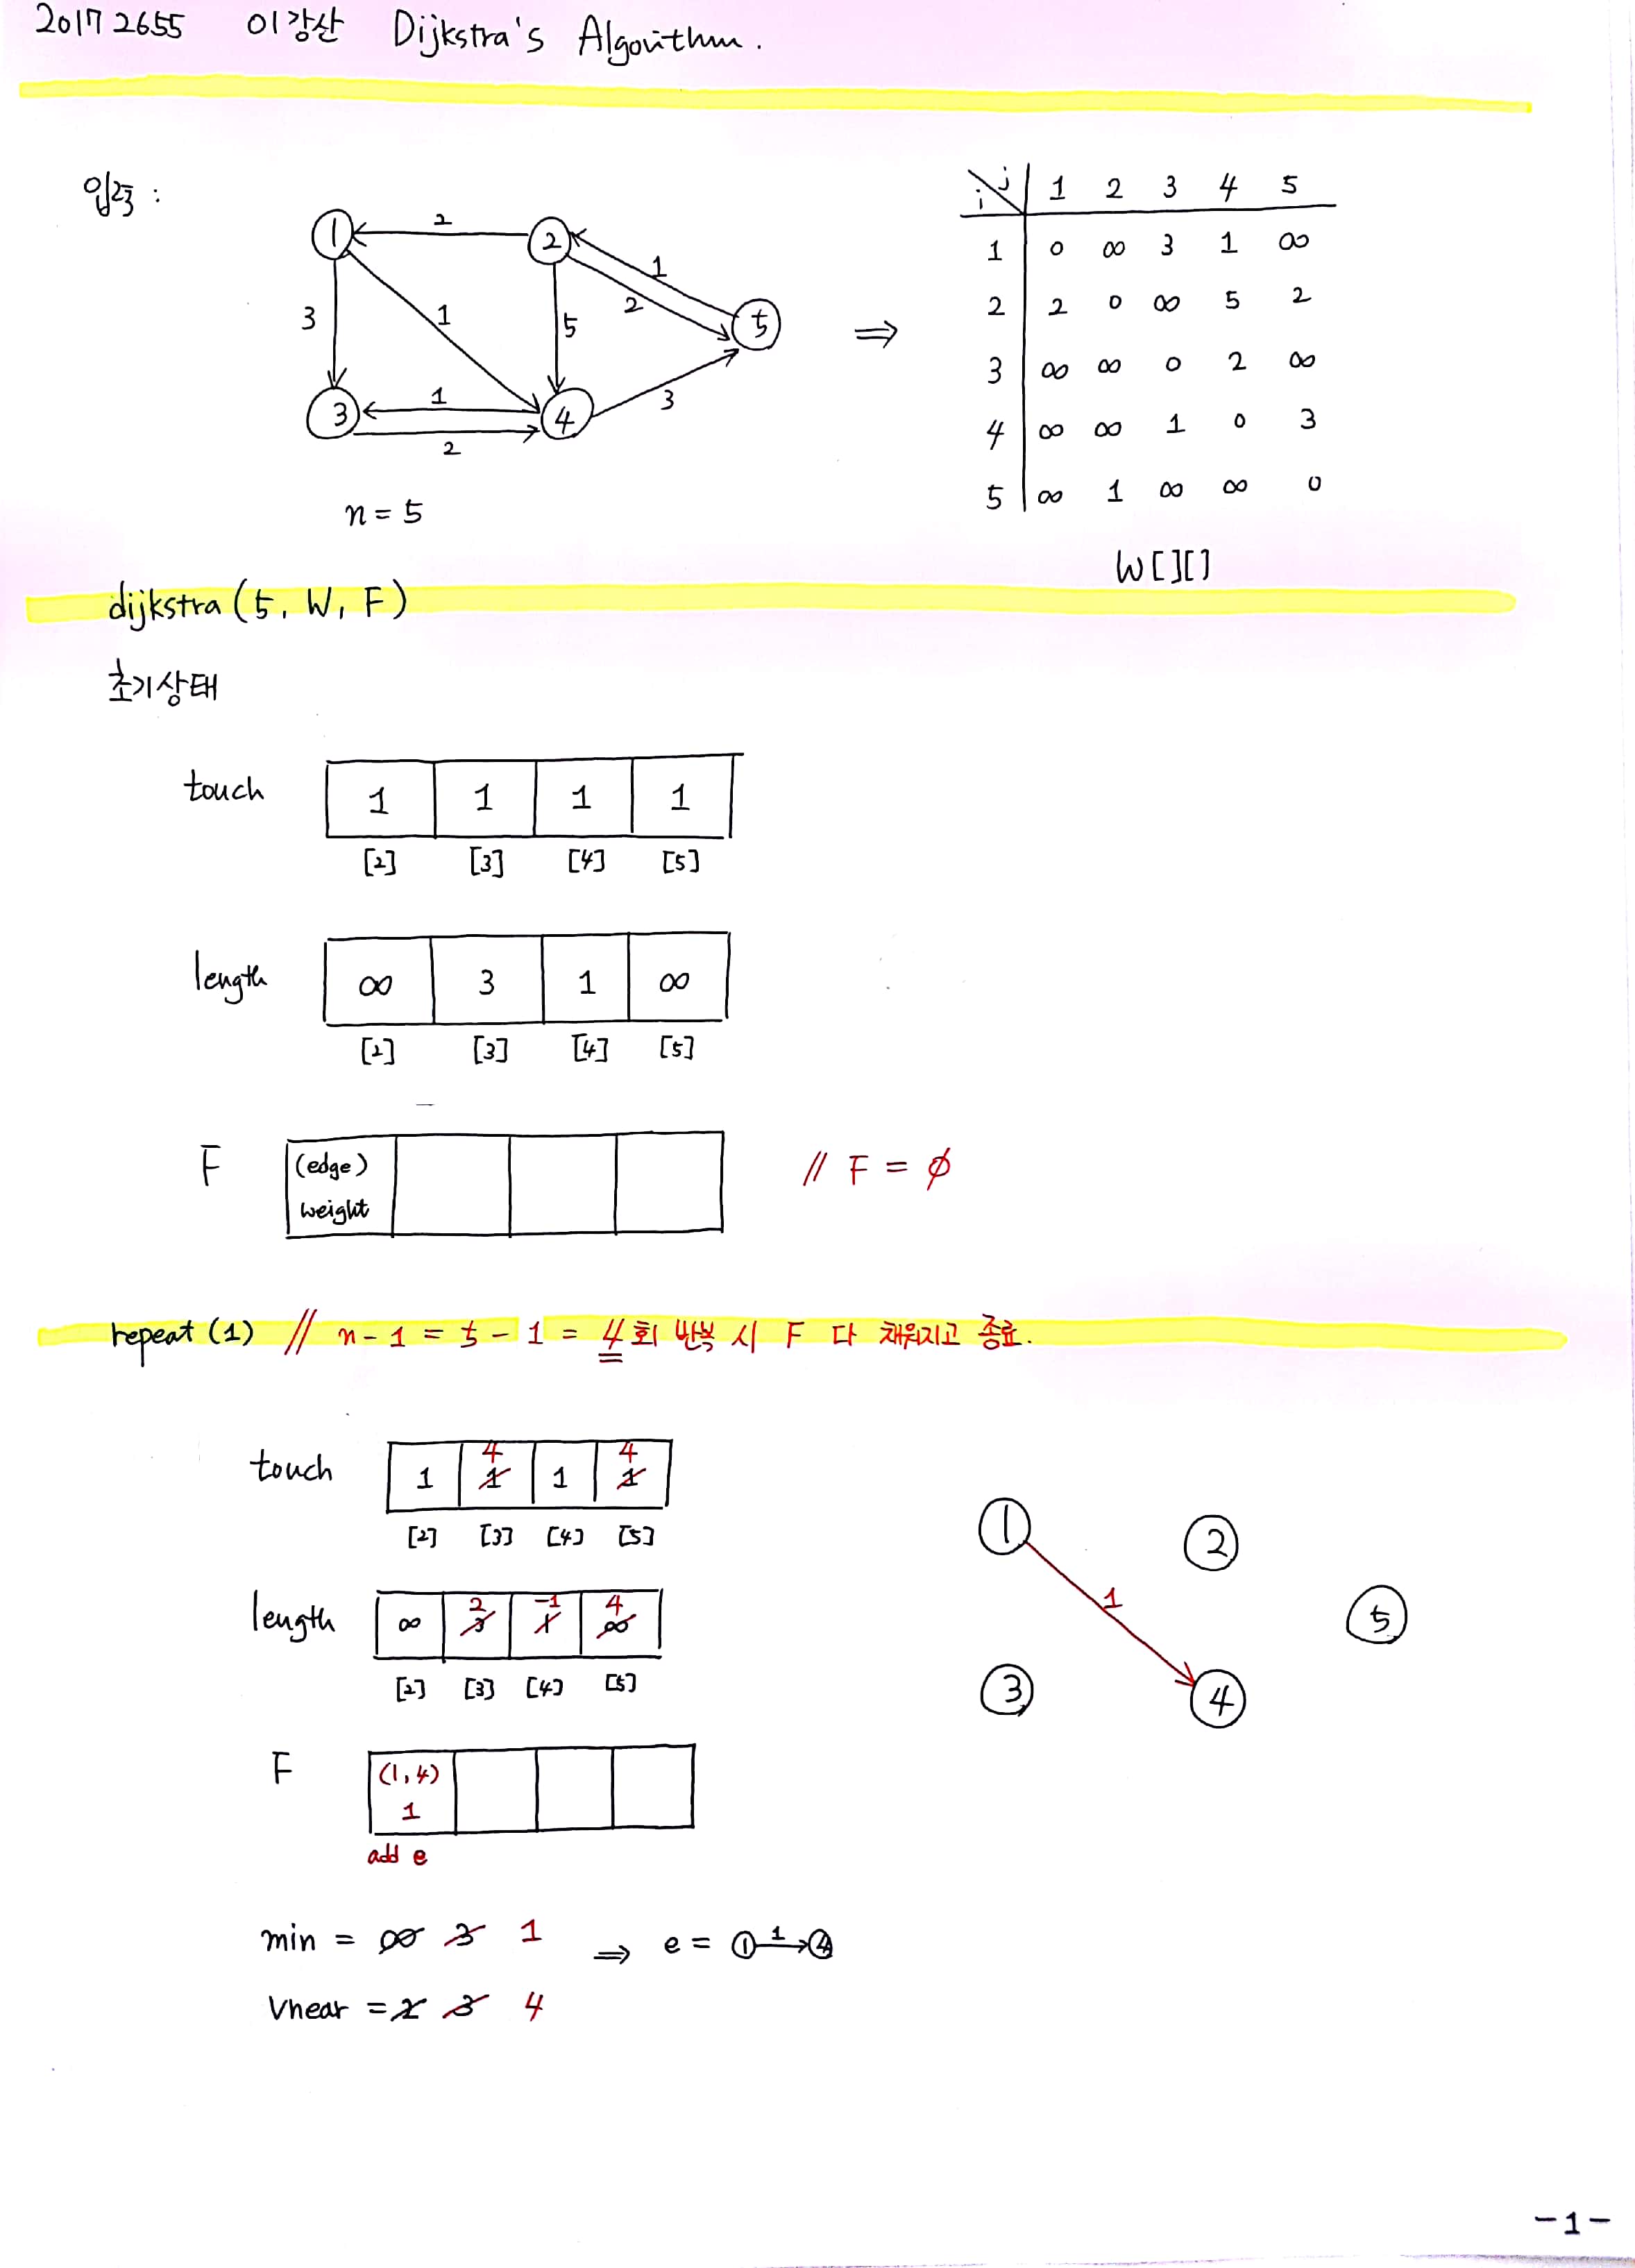 20172655 이강산 Dijkstra's Algorithm.
입력 :
1 2 3 4 5
2 1 2 5 3 1 3 1 2
n = 5
⇒
i j 1 2 3 4 5
1 0 ∞ 3 1 ∞
2 2 0 ∞ 5 2
3 ∞ ∞ 0 2 ∞
4 ∞ ∞ 1 0 3
5 ∞ 1 ∞ ∞ 0
W[][]
dijkstra(5, W, F)
초기상태
touch 1 1 1 1
[2] [3] [4] [5]
length ∞ 3 1 ∞
[2] [3] [4] [5]
F (edge)
weight
// F = ∅
repeat (1) // n - 1 = 5 - 1 = 4회 반복 시 F 다 채워지고 종료.
4 4
touch 1 1 1 1
[2] [3] [4] [5]
2 -1 4
length ∞ 3 1 ∞
[2] [3] [4] [5]
F (1, 4)
1
add e
1 2 3 4 5
1
min = ∞ 3 1 ⇒ e = ① 1→ ④
vnear = 2 3 4
-1-